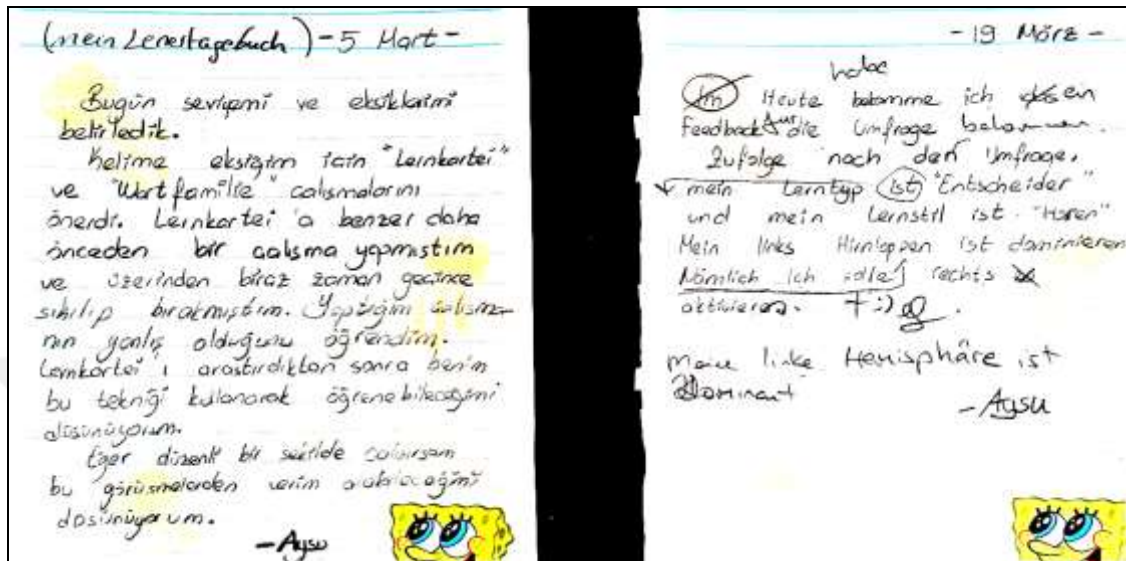 (mein Lenertagebuch) - 5 Mart -
Bugün seviyemi ve eksiklerimi
belirledik.
Kelime eksiğim için "Lernkartei"
ve "Wortfamilie" calışmalarını
önerdi. Lernkartei'a benzer daha
önceden bir calışma yapmıştım
ve üzerinden biraz zaman geçince
sıkılıp bırakmıştım. Yaptığım calışma-
nın yanlış olduğunu öğrendim.
Lernkartei'ı araştırdıktan sonra benim
bu tekniği kulanarak öğrenebileceğimi
düşünüyorum.
Eğer düzenli bir sekilde calısırsam
bu görüsmelerden verim alabileceğimi
düşünüyorum.
- Aysu
- 19 März -
habe
Heute bekomme ich ein
Feedback für die Umfrage bekommen.
Zufolge nach den Umfrage,
mein Lerntyp ist "Entscheider"
und mein Lernstil ist "Hören"
Mein links Hirnlappen ist dominieren
Nämlich ich solle rechts
aktivieren. :)
Meine linke Hemisphäre ist
Dominant
- Aysu